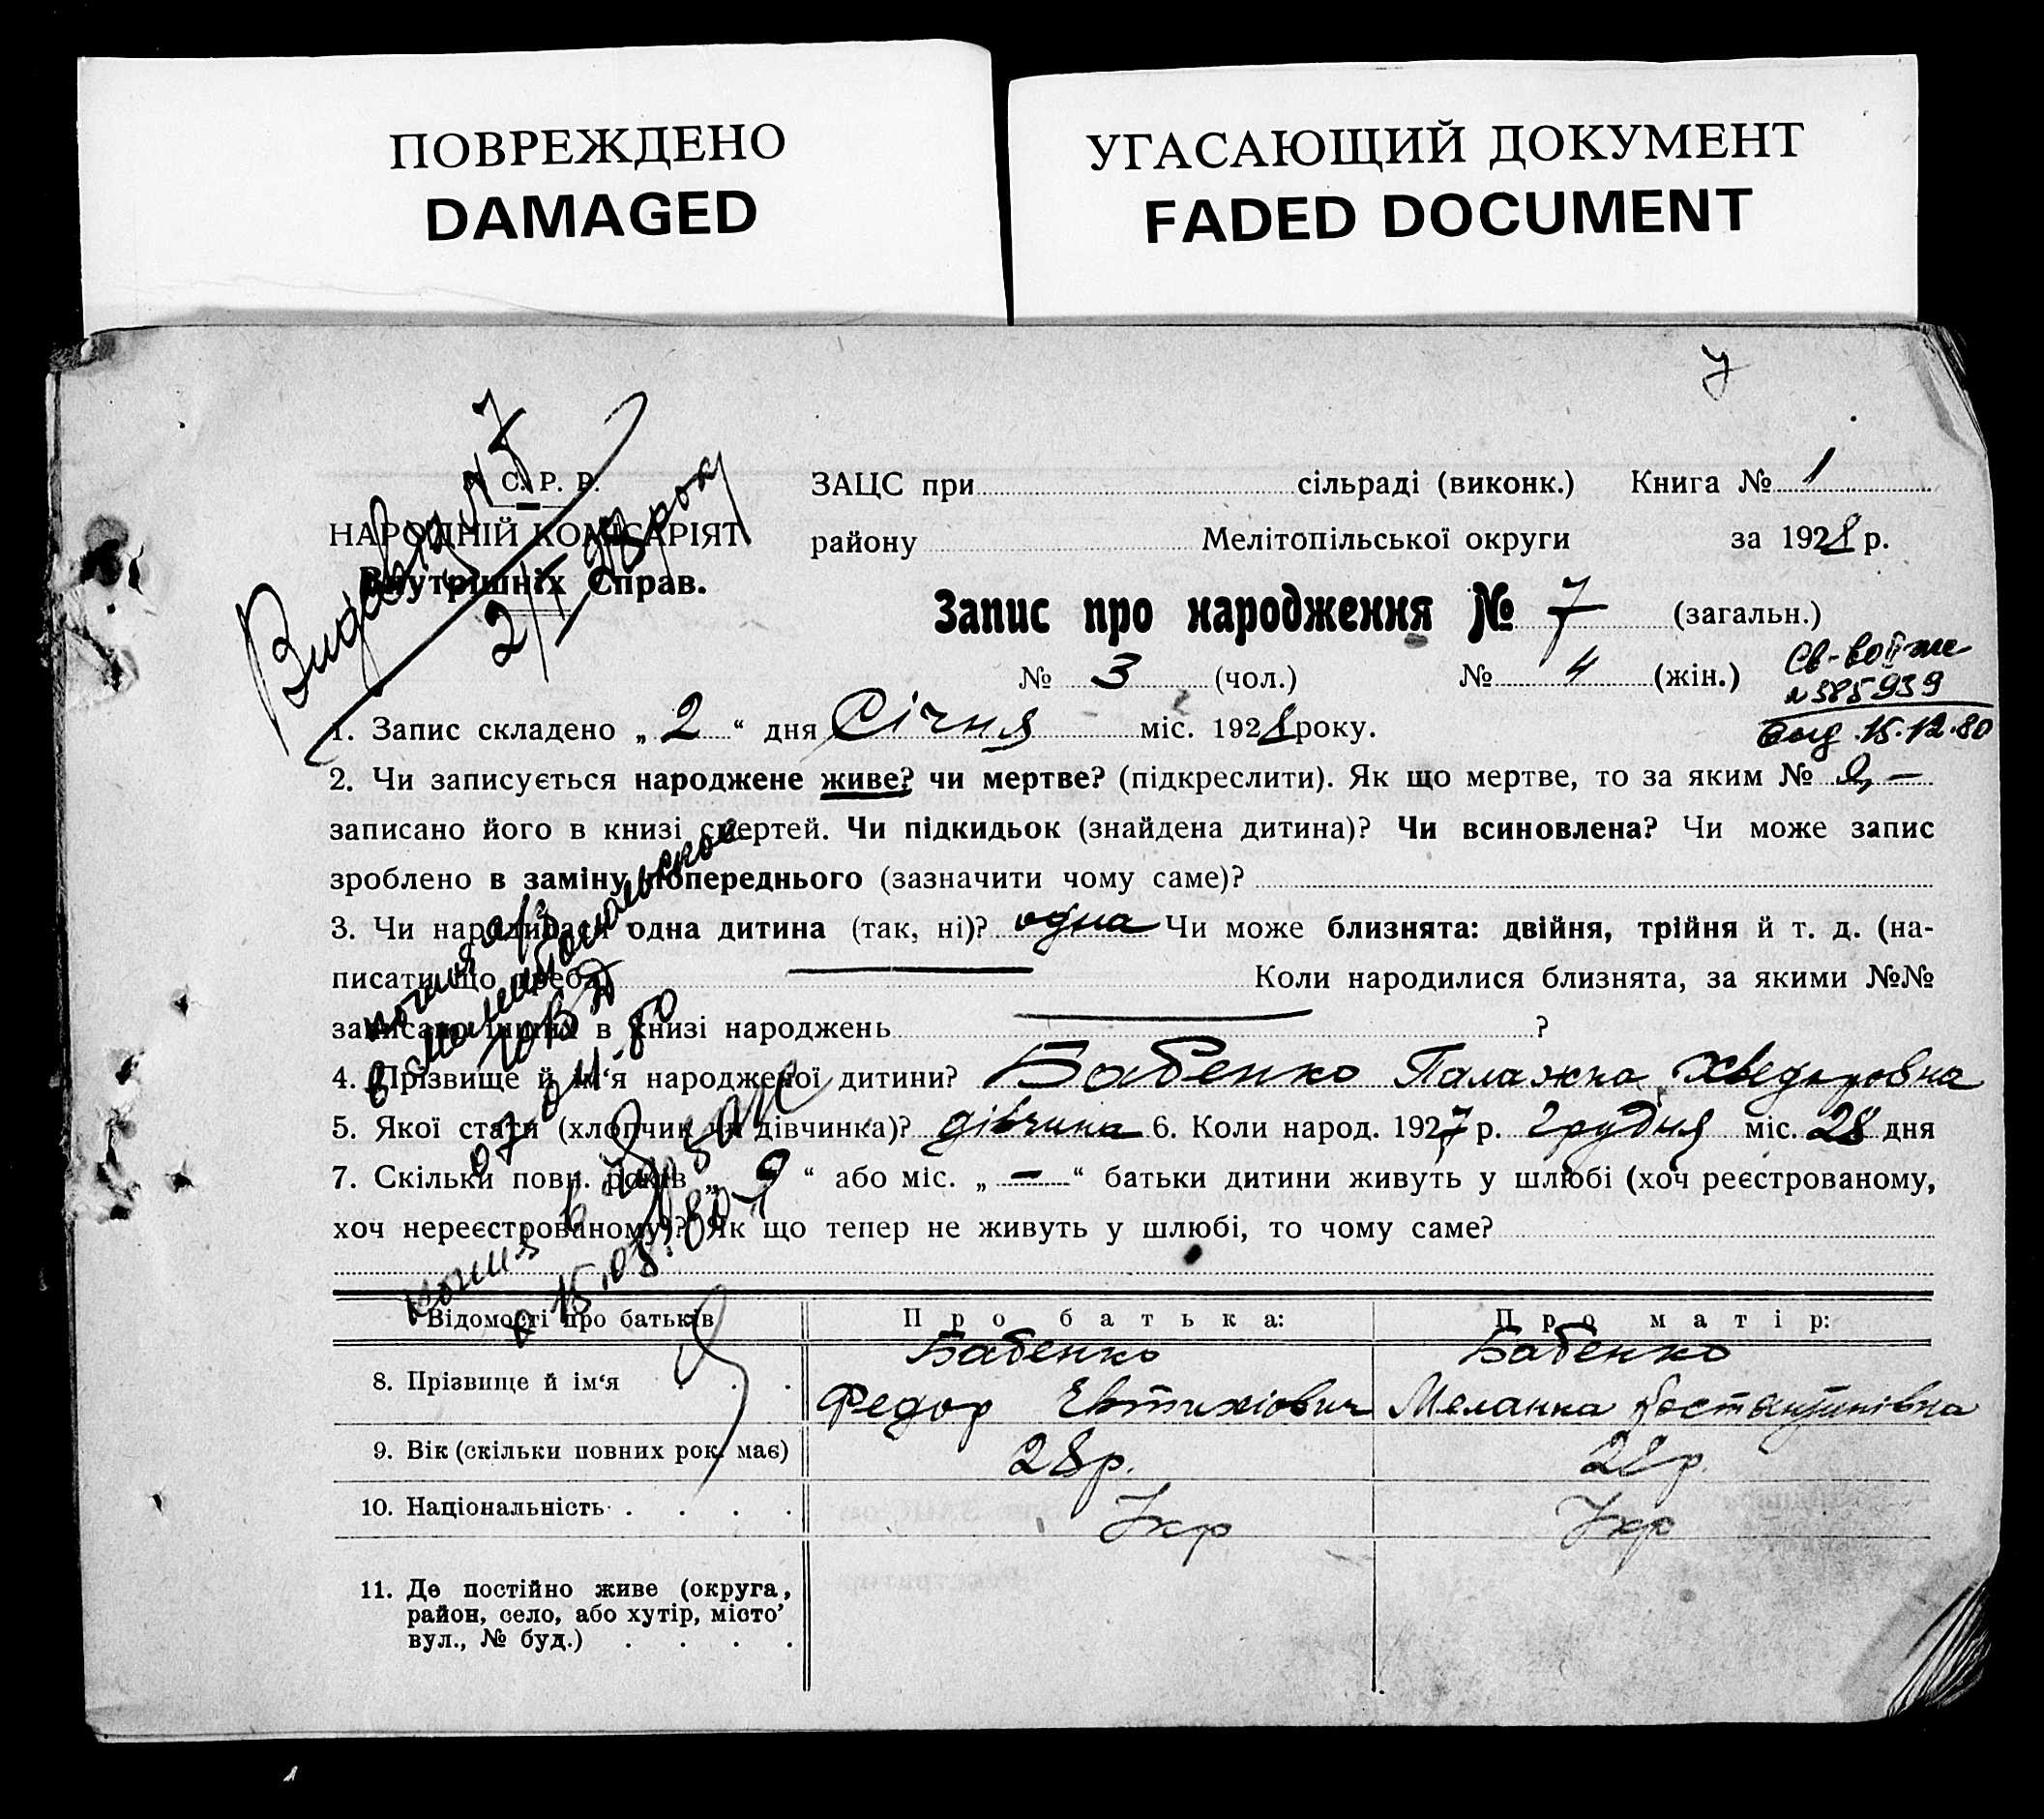 ПОВРЕЖДЕНО
DAMAGED
УГАСАЮЩИЙ ДОКУМЕНТ
FADED DOCUMENT
7
С. Р. Р.
НАРОДНІЙ КОМІСАРІЯТ
Внутрішніх Справ.
Видав
2/I 28 року
ЗАЦС при сільраді (виконк.) Книга № 1
району Мелітопільської округи за 1928 р.
Запис про народження № 7 (загальн.)
№ 3 (чол.) № 4 (жін.)
№ 385939
15.12.80
1. Запис складено „ 2 “ дня Січня міс. 1928 року.
2. Чи записується народжене живе? чи мертве? (підкреслити). Як що мертве, то за яким № —
записано його в книзі смертей. Чи підкидьок (знайдена дитина)? Чи всиновлена? Чи може запис
зроблено в заміну попереднього (зазначити чому саме)?
3. Чи народилася одна дитина (так, ні)? одна Чи може близнята: двійня, трійня й т. д. (на-
писати що треба) Коли народилися близнята, за якими №№
записано інших в книзі народжень ?
4. Прізвище й ім‘я народженої дитини? Бабенко Палажка Хведоровна
5. Якої стати (хлопчик чи дівчинка)? дівчина 6. Коли народ. 1927 р. грудня міс. 28 дня
7. Скільки повн. років „ 9 “ або міс. „ — “ батьки дитини живуть у шлюбі (хоч реєстрованому,
хоч нереєстрованому)? Як що тепер не живуть у шлюбі, то чому саме?
копия
15.08.80
Відомості про батьків Про батька: Про матір:
Бабенко Бабенко
8. Прізвище й ім‘я . . . Федор Евтихіович Меланка Костантинівна
9. Вік (скільки повних рок. має) 28 р. 28 р.
10. Національність . . . . Укр Укр
11. Де постійно живе (округа,
район, село, або хутір, місто
вул., № буд.) . . . .